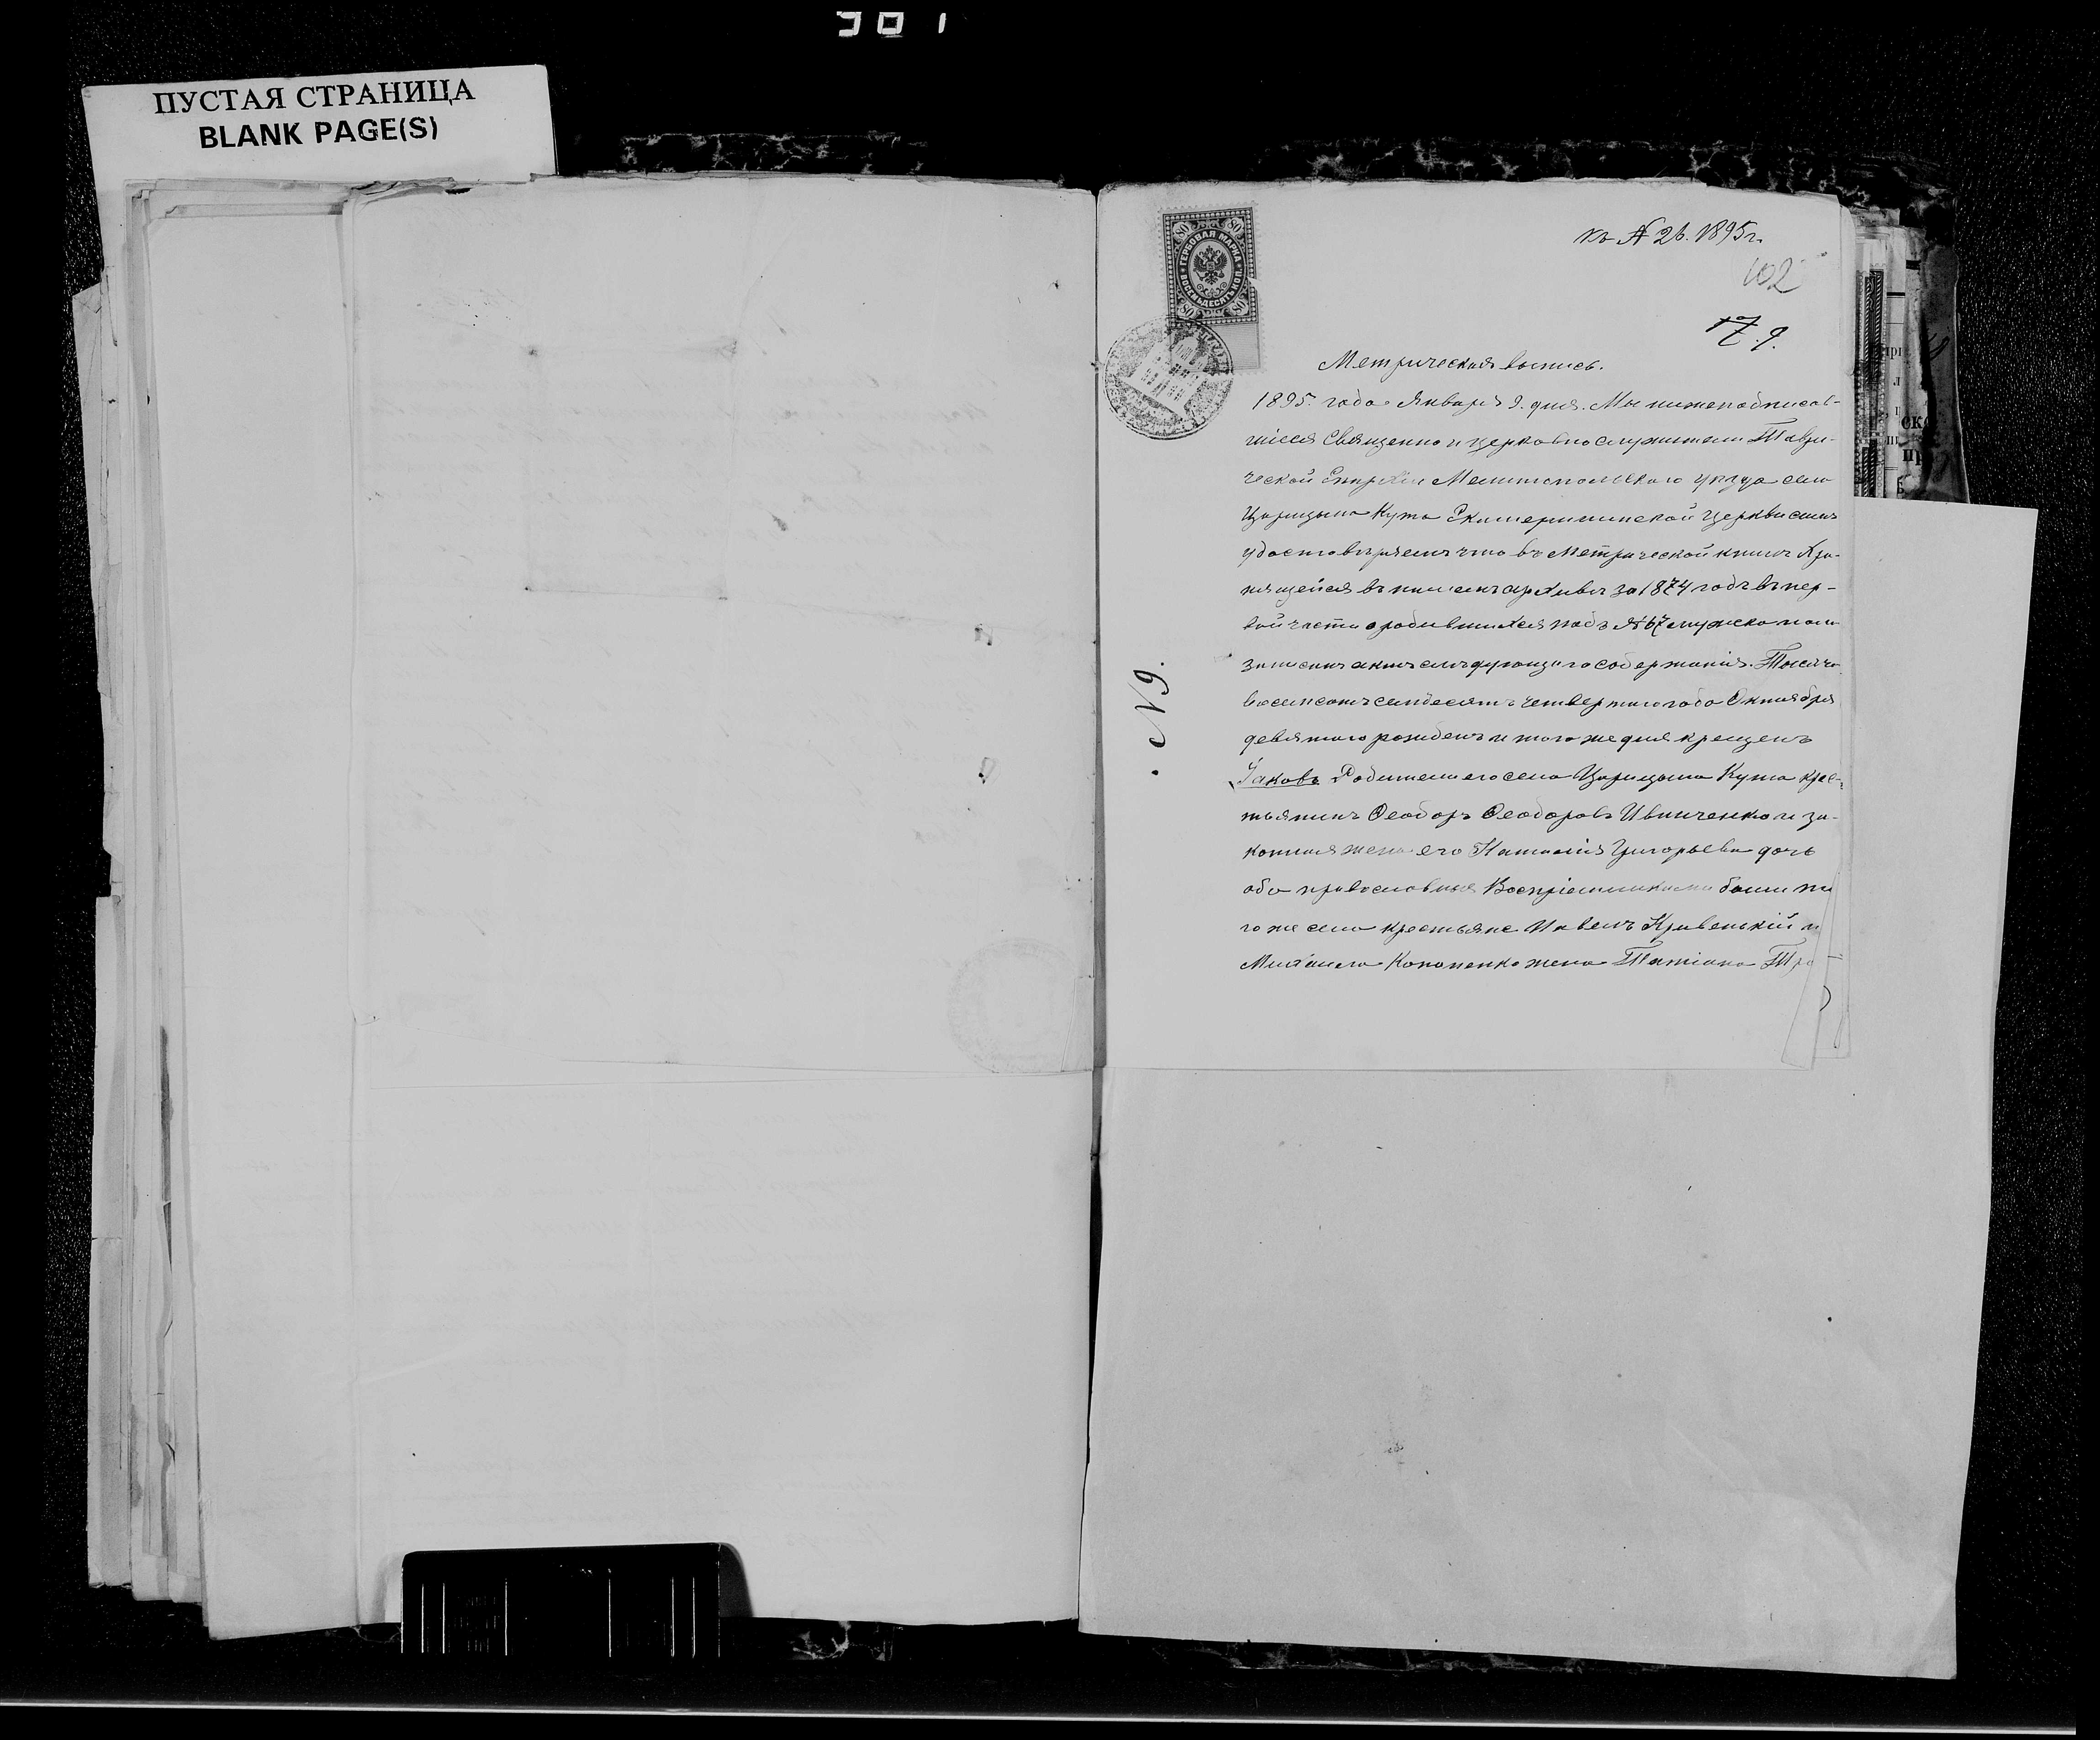 ПУСТАЯ СТРАНИЦА
BLANK PAGE(S)
къ № 26. 1895 г.
102
17. 9.
80 80
ГЕРБОВАЯ МАРКА ВОСЕМЬДЕСЯТЪ КОП.
80 80
Метрическая выпись.
1895. года Января 9. дня. Мы нижеподписав-
шіеся Священно и церковно служители Таври-
ческой Епархіи Мелитопольскаго уѣзда села
Царицына Кута Екатерининской Церкви симъ
удостовѣряемъ что въ Метрической книгѣ хра-
нящейся въ нашемъ архивѣ за 1874 годъ въ пер-
вой части о родившихся подъ № 67 мужска пола
записанъ актъ слѣдующаго содержанія. Тысяча
восемсотъ семдесятъ четвертаго года Октября
девятаго рожденъ и того же дня крещенъ
Іаковъ Родители его села Царицына Кута крес-
тьянинъ Ѳеодоръ Ѳеодоровъ Ивниченко и за-
конная жена его Наталія Григорьева дочь
оба православные Воспріемниками были то
го же села крестьяне Павелъ Кривенькій и
Михаила Кононенко жена Татіана Тро
№ 9.